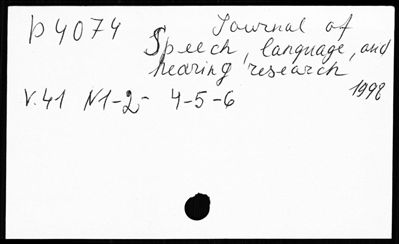 p4074 Journal of
Speech, language, and
hearing research
1998
V.41 N1-2- 4-5-6